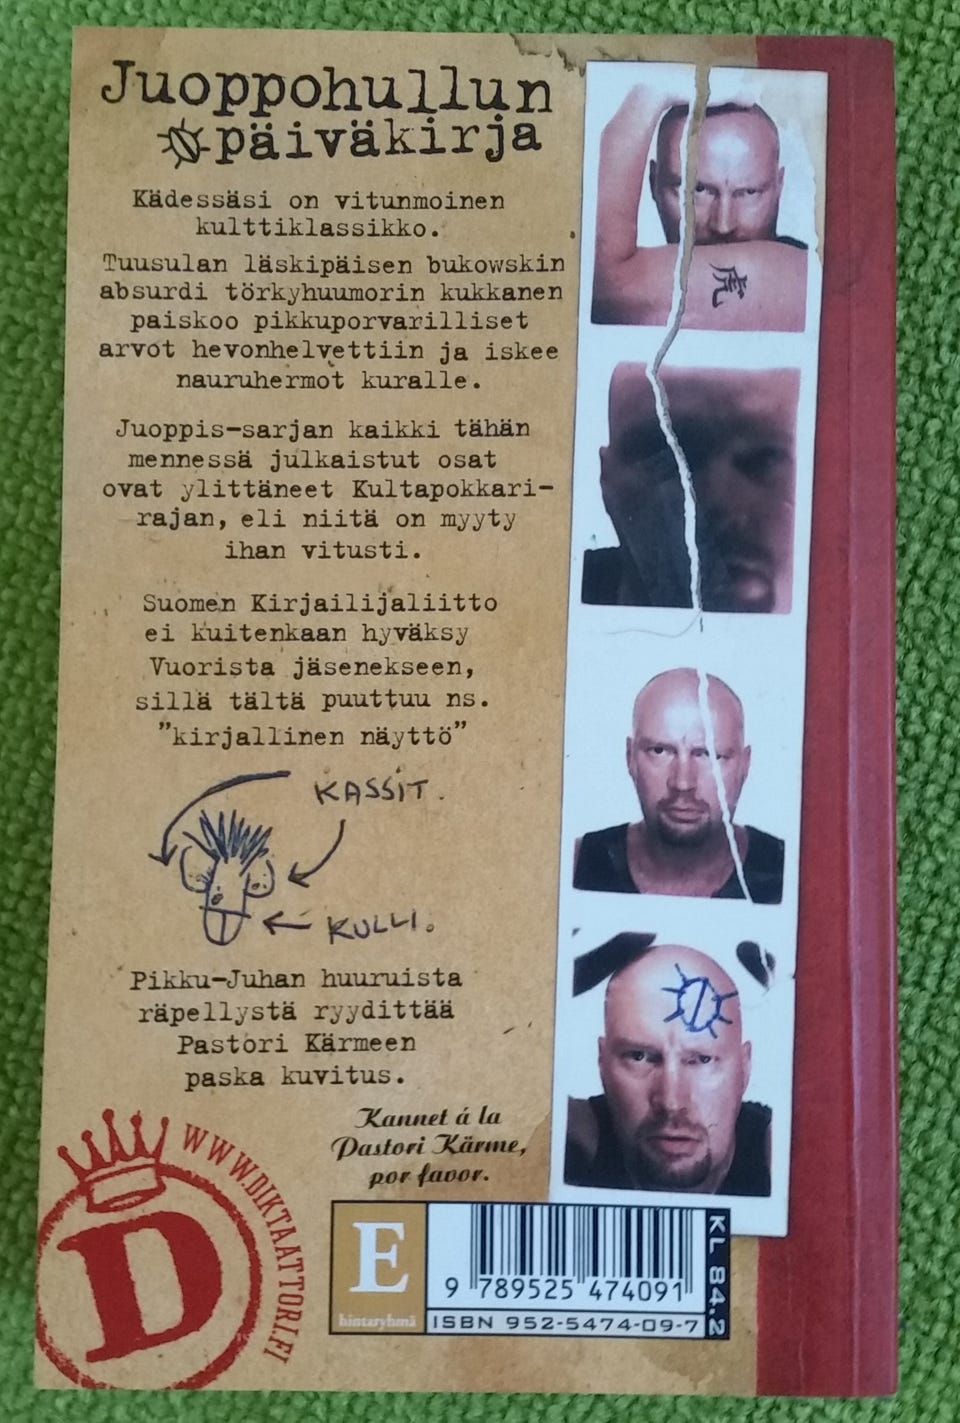 Juoppohullun
päiväkirja
Kädessäsi on vitunmoinen
kulttiklassikko.
Tuusulan läskipäisen bukowskin
absurdi törkyhuumorin kukkanen
paiskoo pikkuporvarilliset
arvot hevonhelvettiin ja iskee
nauruhermot kuralle.
Juoppis-sarjan kaikki tähän
mennessä julkaistut osat
ovat ylittäneet Kultapokkari-
rajan, eli niitä on myyty
ihan vitusti.
Suomen Kirjailijaliitto
ei kuitenkaan hyväksy
Vuorista jäsenekseen,
sillä tältä puuttuu ns.
"kirjallinen näyttö"
KASSIT.
KULLI.
Pikku-Juhan huuruista
räpellystä ryydittää
Pastori Kärmeen
paska kuvitus.
Kannet á la
Pastori Kärme,
por favor.
D
WWW.DIKTAATTORI.FI
E
hintaryhmä
9 789525 474091
ISBN 952-5474-09-7
KL 84.2